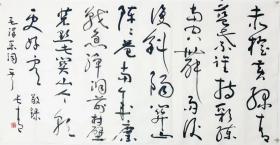 赤橙黄绿青
蓝紫谁持彩练
当空舞雨后
复斜阳关山
阵阵苍当年鏖
战急弹洞前村壁
装点此关山今朝
更好看 敬录
毛泽东词